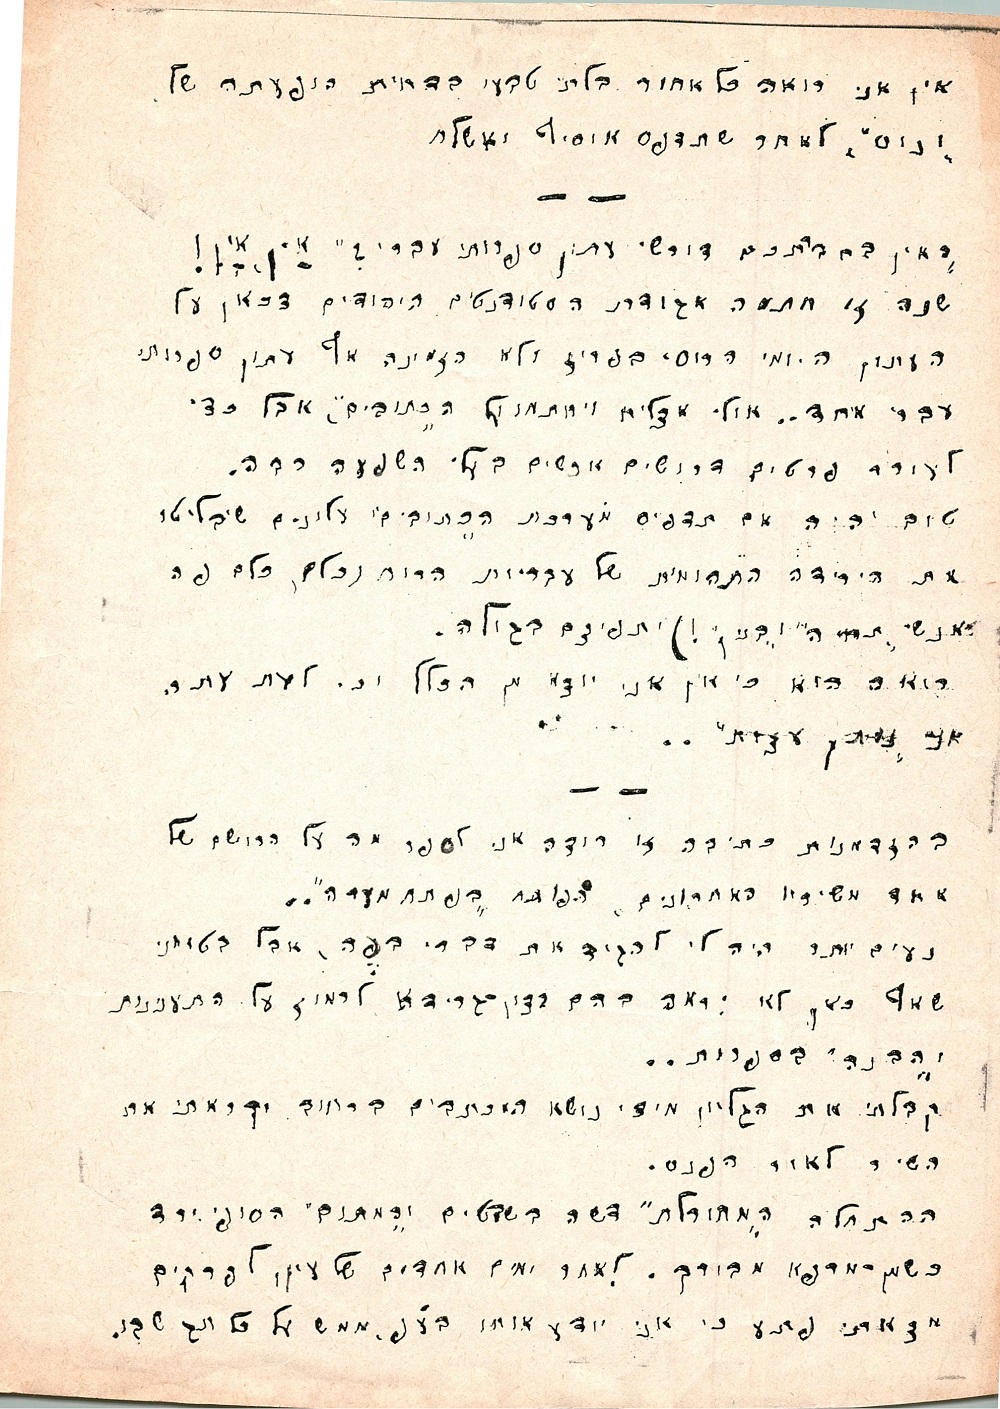 אין אני רואה כל אחור בלתי טבעי בדחית הופעתה של
"ונוס", לאחר שתדפס אוסיף ואשלח
— —
"האין בסביבתכם דורשי עתון ספרותי עברי?" אין, אין!
שנה זו חתמה אגודת הסטודנטים היהודים דכאן על
העתון היומי הרוסי בפריז ולא הזמינה אף עתון ספרותי
עברי אחד.. אולי אצליח ויחתמו על "הכתובים", אבל כדי
לעורר פרטים דרושים אנשים בעלי השפעה רבה.
טוב יהיה אם תדפיס מערכת "הכתובים" עלונים שיבליטו
את הירידה התהומית של עבריות הרוח (כולם, כולם פה
אנשי ה"!) ותפיצם בגולה.
רואה הוא כי אין אני יוצא מן הכלל וכ. לעת עתה
אני "נותן עצות" ..
— —
בהזדמנות כתיבה זו רוצה אני לספר מה על הרושם של
אחד משיריו האחרונים, הפותח "בנפתח מערה"..
נעים יותר היה לי להגיד את דברי בפה, אבל בטוחני
שאף כאן לא יראה בהם רצון-גרידא לרמוז על התענינות
ו"הבנה" בספרות..
קבלתי את הגליון מידי נושא המכתבים ברחוב וקראתי את
השיר לאור הפנס.
ההתחלה "המחוררת" דשה בשבטים ו"המתום" הסופי ירד
כשמן-מרפא מבורך. לאחר ימים אחדים של עיון לפרקים
מצאתי פתע כי אני יודע אותו בע"פ, ממש על כל תג שבו.